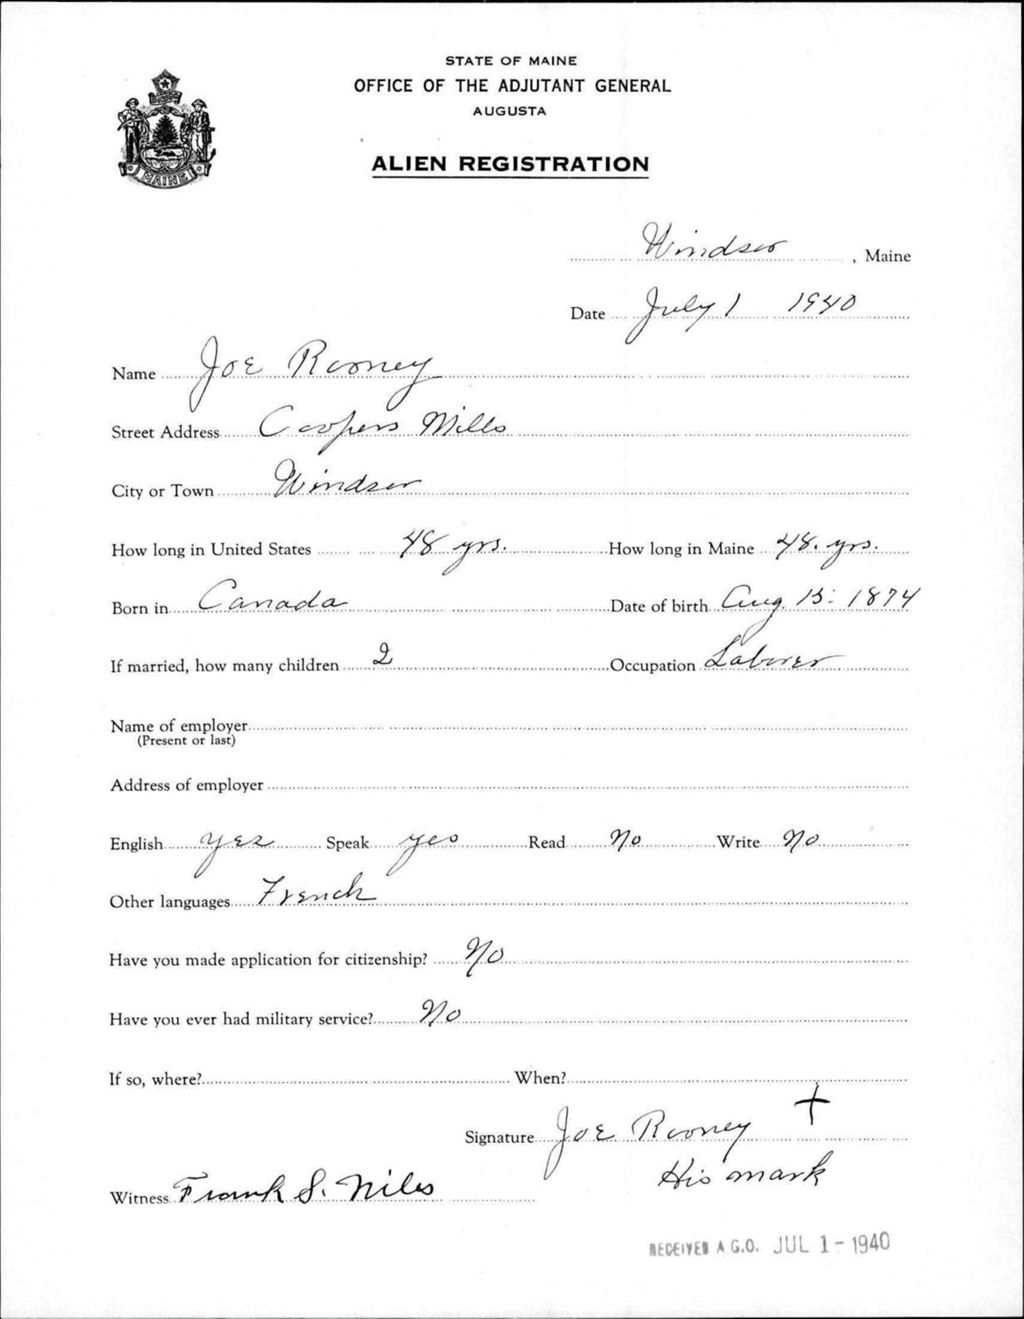 STATE OF MAINE
OFFICE OF THE ADJUTANT GENERAL
AUGUSTA
ALIEN REGISTRATION
MAINE
Windsor, Maine
Date July 1 1940
Name Joe Rooney
Street Address Coopers Mills
City or Town Windsor
How long in United States 48 yrs. How long in Maine 48. yrs.
Born in Canada Date of birth Aug. 15: 1874
If married, how many children 2 Occupation Laborer
Name of employer
(Present or last)
Address of employer
English yes Speak yes Read No Write No
Other languages French
Have you made application for citizenship? No
Have you ever had military service? No
If so, where? When?
Signature Joe Rooney +
His mark
Witness Frank S. Niles
RECEIVED A.G.O. JUL 1 - 1940